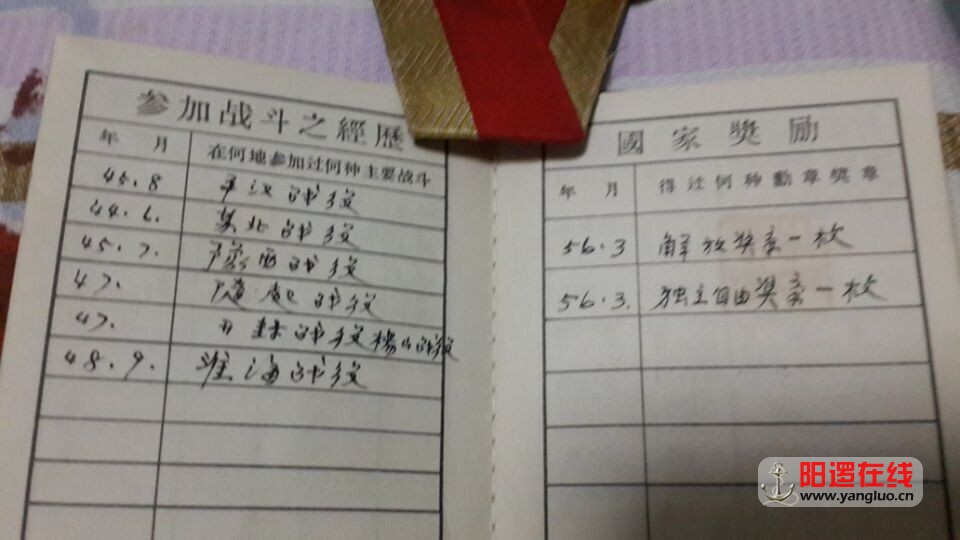 参加战斗之經歷
年 月 在何地参加过何种主要战斗
45.8 平汉战役
44.6. 战役
45.7. 战役
47. 战役
47. 战役 战役
48.9. 淮海战役
國家獎励
年 月 得过何种勳章獎章
56.3 解放奖章一枚
56.3. 独立自由奖章一枚
阳逻在线
www.yangluo.cn